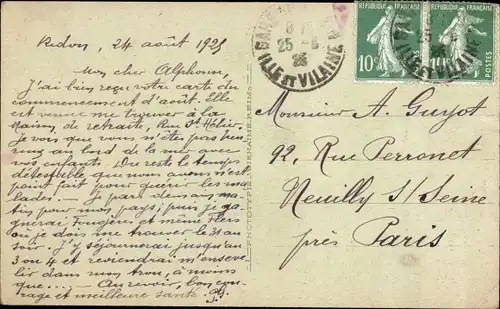 Redon, 24 août 1925
Mon cher Alphonse,
J'ai bien reçu votre carte du
commencement d'août. Elle
est venue me trouver à la
Maison de retraite, Rue St Hélier.
Je vois que vous n'êtes pas
au bord de la mer avec
vos enfants. Du reste le temps
détestable que nous avons n'est
point fait pour guérir les ma-
lades. — Je pars demain ma-
tin pour mon pays, puis je ga-
gnerai et même
où je dois me trouver le 31 au
soir. J'y séjournerai jusqu'au
3 ou 4 et reviendrai m'enseve-
lir dans mon trou, à moins
que .... — Au revoir, bon cou-
rage et meilleure santé.
Monsieur A. Guyot
92, Rue Perronet
Neuilly s/Seine
près Paris
25 - 8
25
ILLE ET VILAINE
REPUBLIQUE FRANÇAISE
10c
POSTES